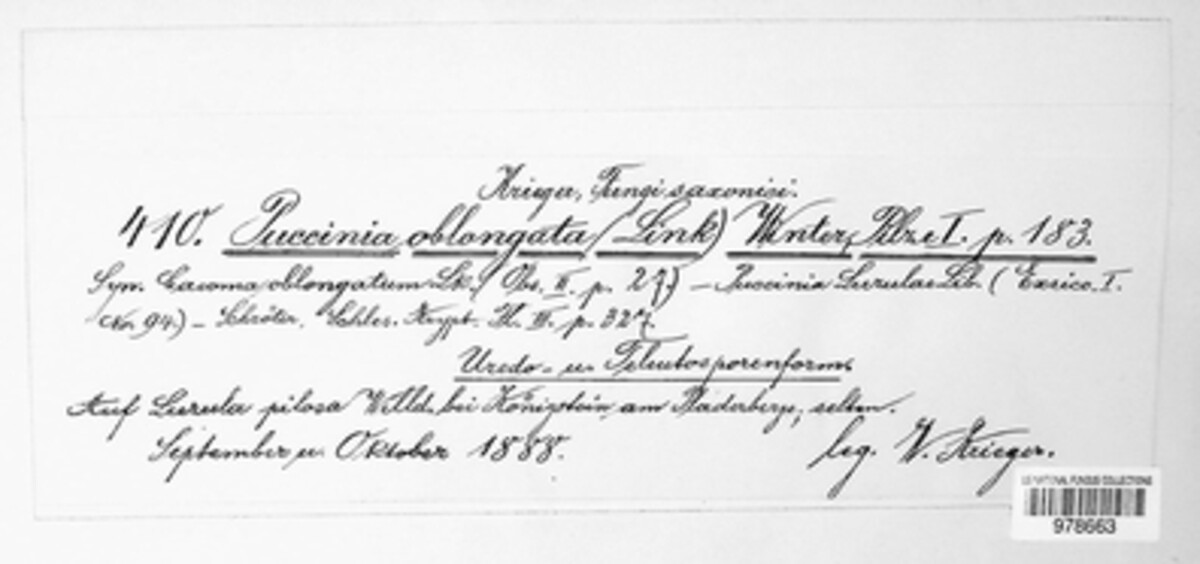 Krieger, Fungi saxonici.
410. Puccinia oblongata (Link) Winter, Pilze I. p. 183.
Syn. Caeoma oblongatum Lk. (Obs. II. p. 27) – Puccinia Luzulae Lib. (Exsicc. I.
No. 94.) – Schröter, Schles. Krypt. Fl. III. p. 327.
Uredo- u. Teleutosporenform.
Auf Luzula pilosa Willd. bei Königstein, am selten.
September u. Oktober 1888.
leg. W. Krieger.
US NATIONAL FUNGUS COLLECTIONS
978663